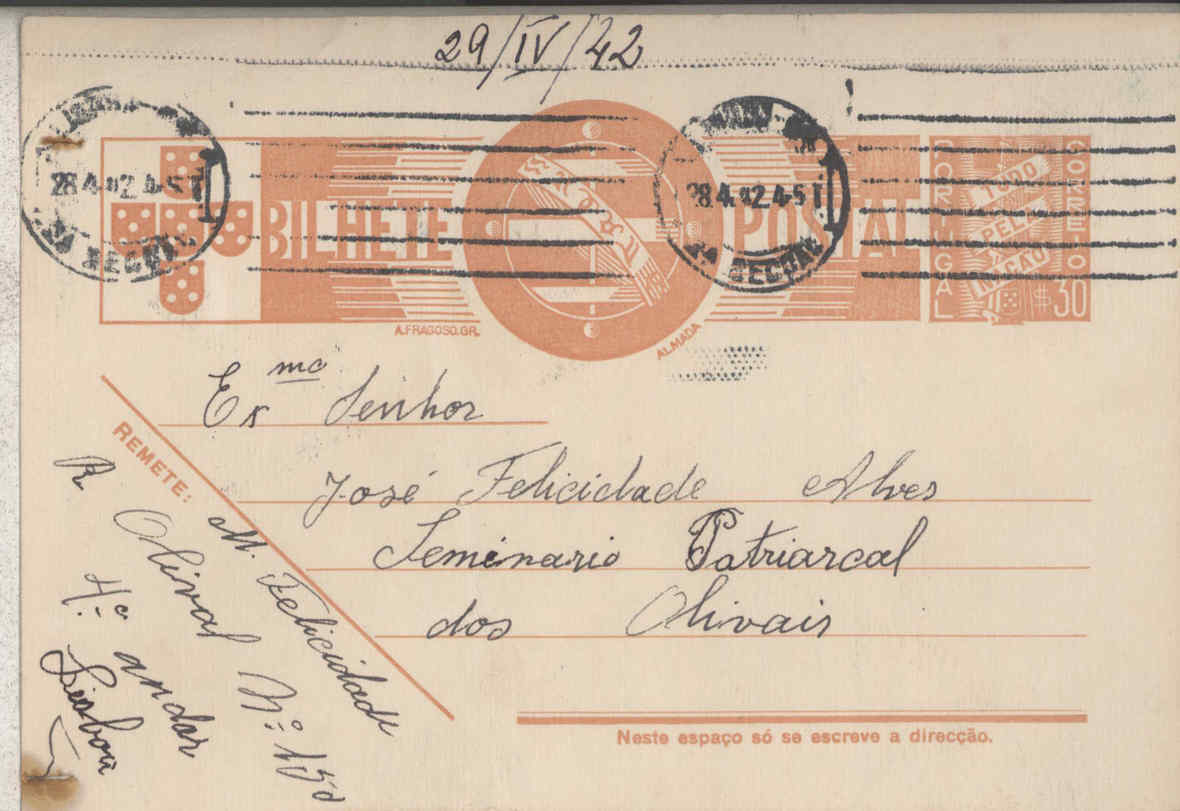 29/IV/42
28.4.42.4-5 T
28.4.42.4-5 T
BILHETE POSTAL
PORTUGAL
CORREIO
TUDO
PELA
NAÇÃO
$30
A.FRAGOSO.GR.
ALMADA
Exmo Senhor
José Felicidade Alves
Seminario Patriarcal
dos Olivais
REMETE:
M. Felicidade
R Olival Nº 150
4º andar
Lisboa
Neste espaço só se escreve a direcção.